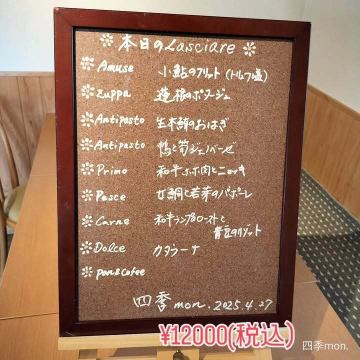 本日のLasciare
Amuse 小鮎のフリット(トリュフ塩)
Zuppa 蓮根のポタージュ
Antipasto 生本鮪のおはぎ
Antipasto 鴨と筍ジェノベーゼ
Primo 和牛ホホ肉とニョッキ
Pesce 女鯛と若芽のバポーレ
Carne 和牛ランプ ローストと
青豆のリゾット
Dolce カタラーナ
pan&cofee
四季mon. 2025.4.27
¥12000(税込)
四季mon.